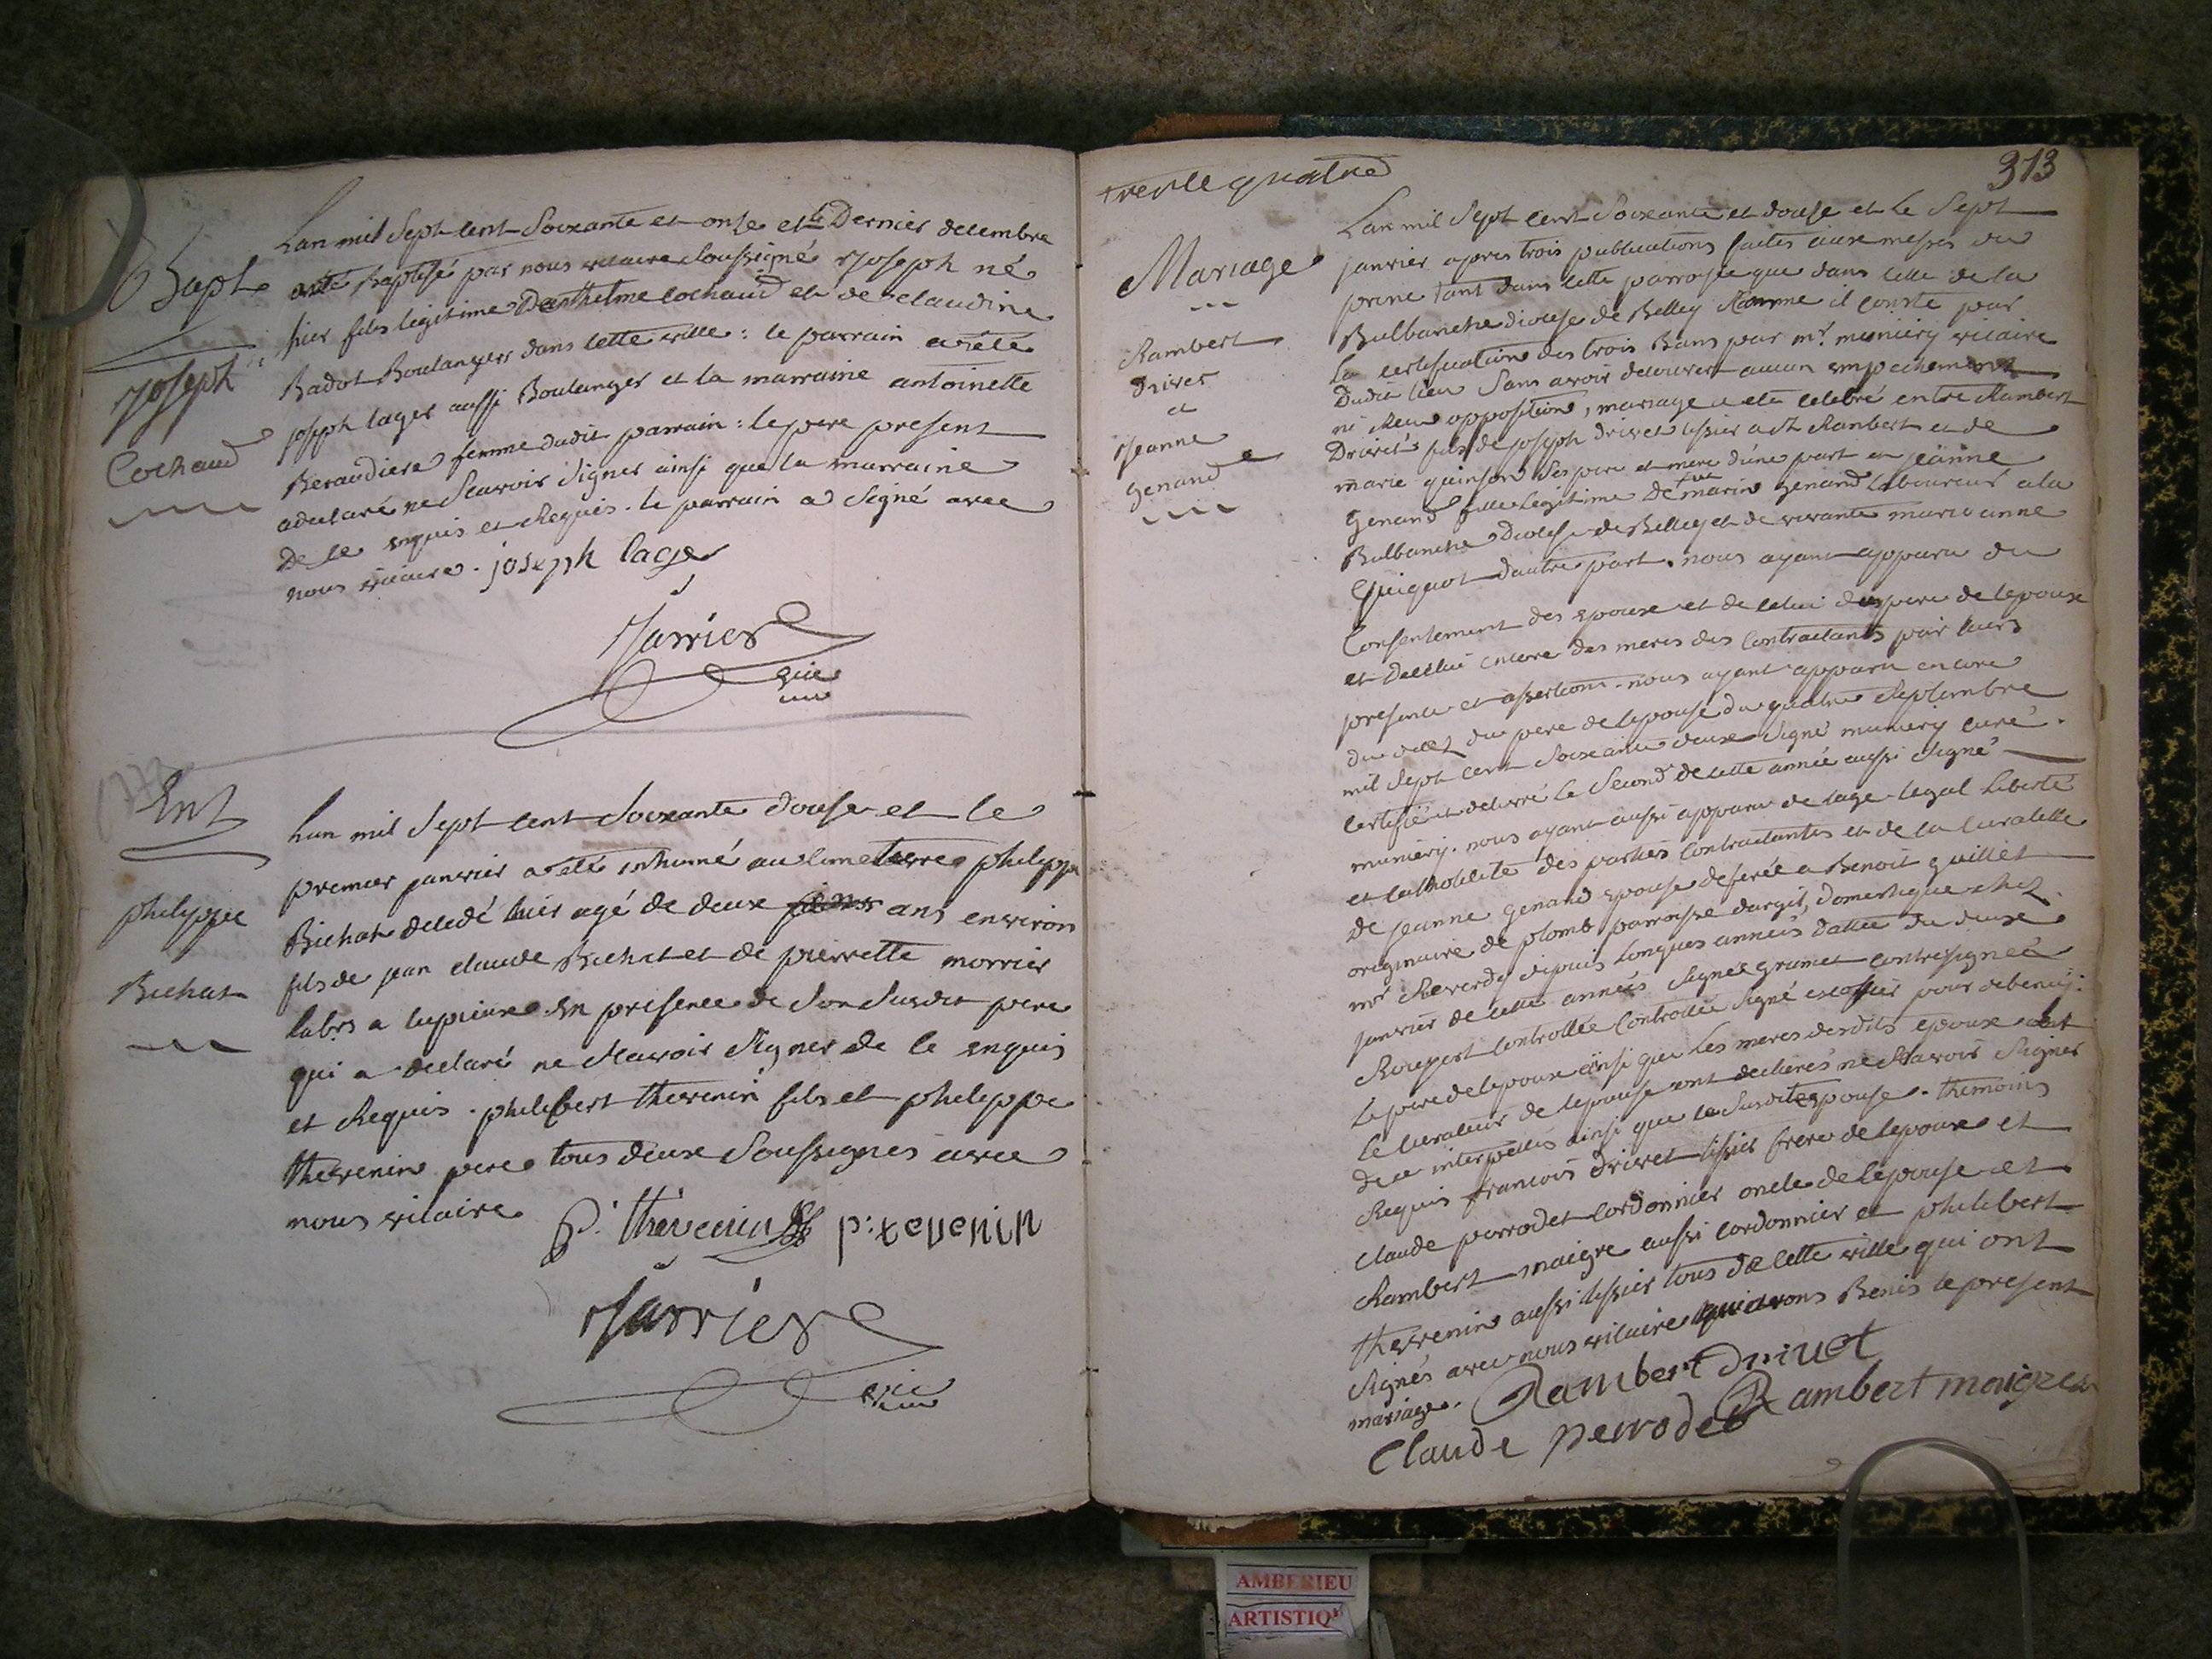 Bapt
Joseph
Cochaud
Lan mil Sept cent Soixante et onse et le Dernier decembre
a été Baptisé par nous vicaire Soussigné Joseph né
hier fils legitime Danthelme Cochaud et de Claudine
Badot Boulangers dans cette ville : le parrain a été
joseph lager aussi Boulanger et la marraine antoinette
Beraudiere femme dudit parrain : le pere present
a declaré ne Scavoir Signer ainsi que la marraine
de ce enquis et Requis . le parrain a Signé avec
nous vicaire . joseph lager
Jarrier
vic
Ent
philippe
Bichat
Lan mil Sept cent Soixante douse et le
premier janvier a été inhumé au Cimeterre philippe
Bichat decedé hier agé de deux ans environ
fils de jean claude Bichat et de pierrette morrier
En presence de Son Susdit pere
qui a declaré ne Scavoir Signer de ce enquis
et Requis . philibert thevenin fils et philippe
thevenin pere tous deux Soussignés avec
nous vicaire
P. thévenin p: tevenin
Jarrier
vic
trente quatre
313
Mariage
Rambert
Drivet
et
Jeanne
Genand
Lan mil Sept cent Soixante et douse et le Sept
janvier apres trois publications faites aux messes du
prone tant dans cette parroisse que dans celle de la
Bulbanche diocese de Belley Comme il conste par
la certification des trois Bans par mr. muniery vicaire
Dudit lieu Sans avoir decouvert aucun empechement
ni Reçu opposition, mariage a été celebré entre Rambert
Drivet fils de joseph drivet tissier a St Rambert et de
marie quinson Ses pere et mere d'une part et jeanne
Genand fille legitime de feu marin genand laboureur a la
Bulbanche Diocese de Belley et de vivante marie anne
Guignot dautre part . nous ayant apparu du
Consentement des epoux et de celui du pere de lepoux
et de celui encore des meres des Contractants par leurs
presence et assertions . nous ayant apparu encore
du decez du pere de lepouse du quatre Septembre
mil Sept cent Soixante deux Signé muniery curé .
certifié et delivré le Second de cette année aussi Signé
muniery . nous ayant aussi apparu de lage legal liberté
et catholicité des parties Contractantes et de la Curatelle
de jeanne genand epouse deferée a Benoit guillet
originaire de plomb parroisse dargit, domestique chez
mr Reverdy depuis longues années dattée du deux
janvier de cette année Signée grumet contresignée
Rougert controllée Signé escoffier pour debeney .
Le pere de lepoux ainsi que les meres desdits epoux et
le Curateur de lepouse ont declarés ne Scavoir Signer
de ce interpellés ainsi que la Susdite epouse . themoins
Requis francois drivet tissier frere de lepoux et
claude perrodet cordonnier oncle de lepouse et
Rambert maigre aussi cordonnier et philibert
thevenin aussi tissier tous de cette ville qui ont
Signés avec nous vicaire qui avons Benis le present
mariage . Rambert Drivet
Claude perrodet Rambert maigre
AMBERIEU
ARTISTIQ